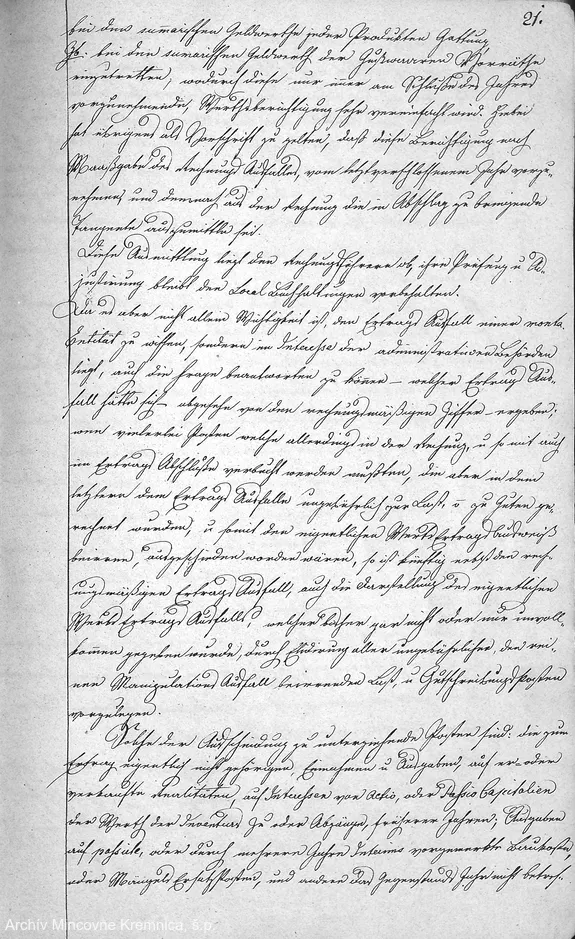 21.
bei dem sumarischen Geldwerthe jeder Produkten Gattung
Zb. bei dem sumarischen Geldwerth der Gußwaaren Vorräthe
einzutretten, wodurch diese nur imer am Schluße des Jahres
vorzunehmende, Werthsberichtigung sehr vereinfacht wird. Hiebei
hat übrigens als Vorschrift zu gelten, daß diese Berichtigung nach
Maaßgabe des Rechnungs Ausfalles, vom letztverschlossenem Jahr vorzu-
nehmen, und demnach aus der Rechnung die in Abschlag zu bringende
Tangente auszumitteln sei.
Diese Ausmittlung liegt den Rechnungsführern ob, ihre Prüfung u Ad-
justirung bleibt den Local Buchhaltungen vorbehalten.
Da es aber nicht allein Wichtigkeit ist, den Ertrags Ausfall einer mont.
Entität zu wissen, sondern im Interesse der administrativen Behörden
liegt, auch die Frage beantworten zu könen – welcher Ertrags Aus-
fall hätte sich – abgesehen von den rechnungsmäßigen Ziffer – ergeben;
wen vielerlei Posten welche allerdings in der Rechnung, u so mit auch
im Ertrags Abschluße verbucht werden mußten, die aber in dem
letztern dem Ertrags Ausfalle ungebührlich zur Last, o zu Guten ge-
rechnet wurden, u somit den eigentlichen Werks Ertrags
beirren, ausgeschieden worden wären, so ist künftig nebst den rech-
nungsmäßigen Ertrags Ausfall, auch die Darstellung des eigentlichen
Werks Ertrags Ausfalls, welcher bisher gar nicht oder nur unvoll-
komen gegeben wurde, durch Eludirung aller ungebührlicher, den rei-
nen Manipulations Ausfall beirrenden Last, u Gutschreibungs Posten
vorzulegen.
Solche der Ausscheidung zu unterziehende Posten sind: die zum
Ertrag eigentlich nicht gehörigen Einnahmen u Ausgaben, auf er- oder
verkaufte Realitäten, auf Interessen von Activ, oder Passiv Capitalien
der Werth der Inventars Zu oder Abgänge, früherer Jahren; Ausgaben
auf passivte, oder durch mehrere Jahre Interims vorgemerkte Baukosten,
oder Mängels Ersatzposten, und andere das Gegenstands Jahr nicht betref-
Archív Mincovne Kremnica, š.p.